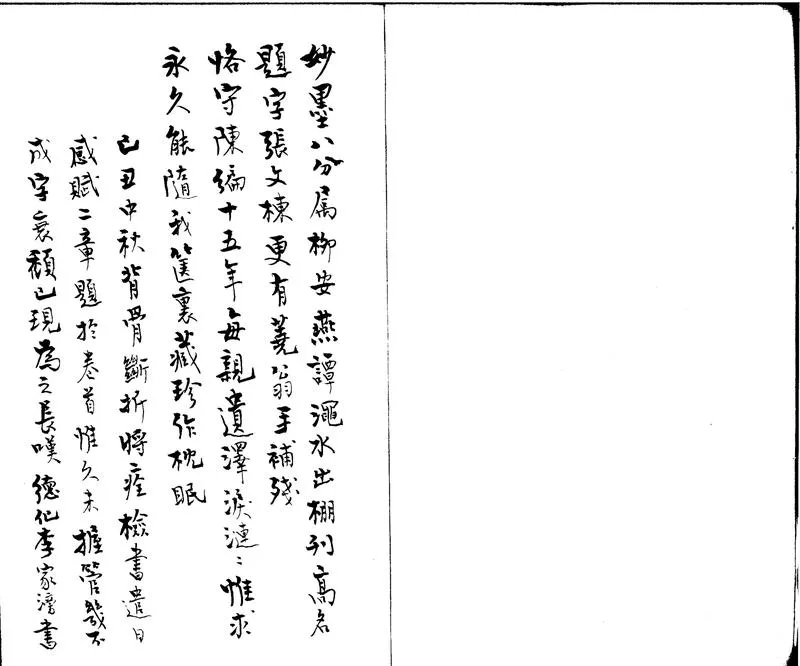 妙墨八分属柳安燕譚澠水出棚列高名
題字張文棟更有蕘翁手補殘
恪守陳編十五年每親遺澤淚漣〻惟求
永久能隨我篋裏藏珍作枕眠
己丑中秋背骨斷折將痊檢書遣日
感賦二章題於卷首惟久未握管幾不
成字衰頹已現為之長嘆德化李家濬書